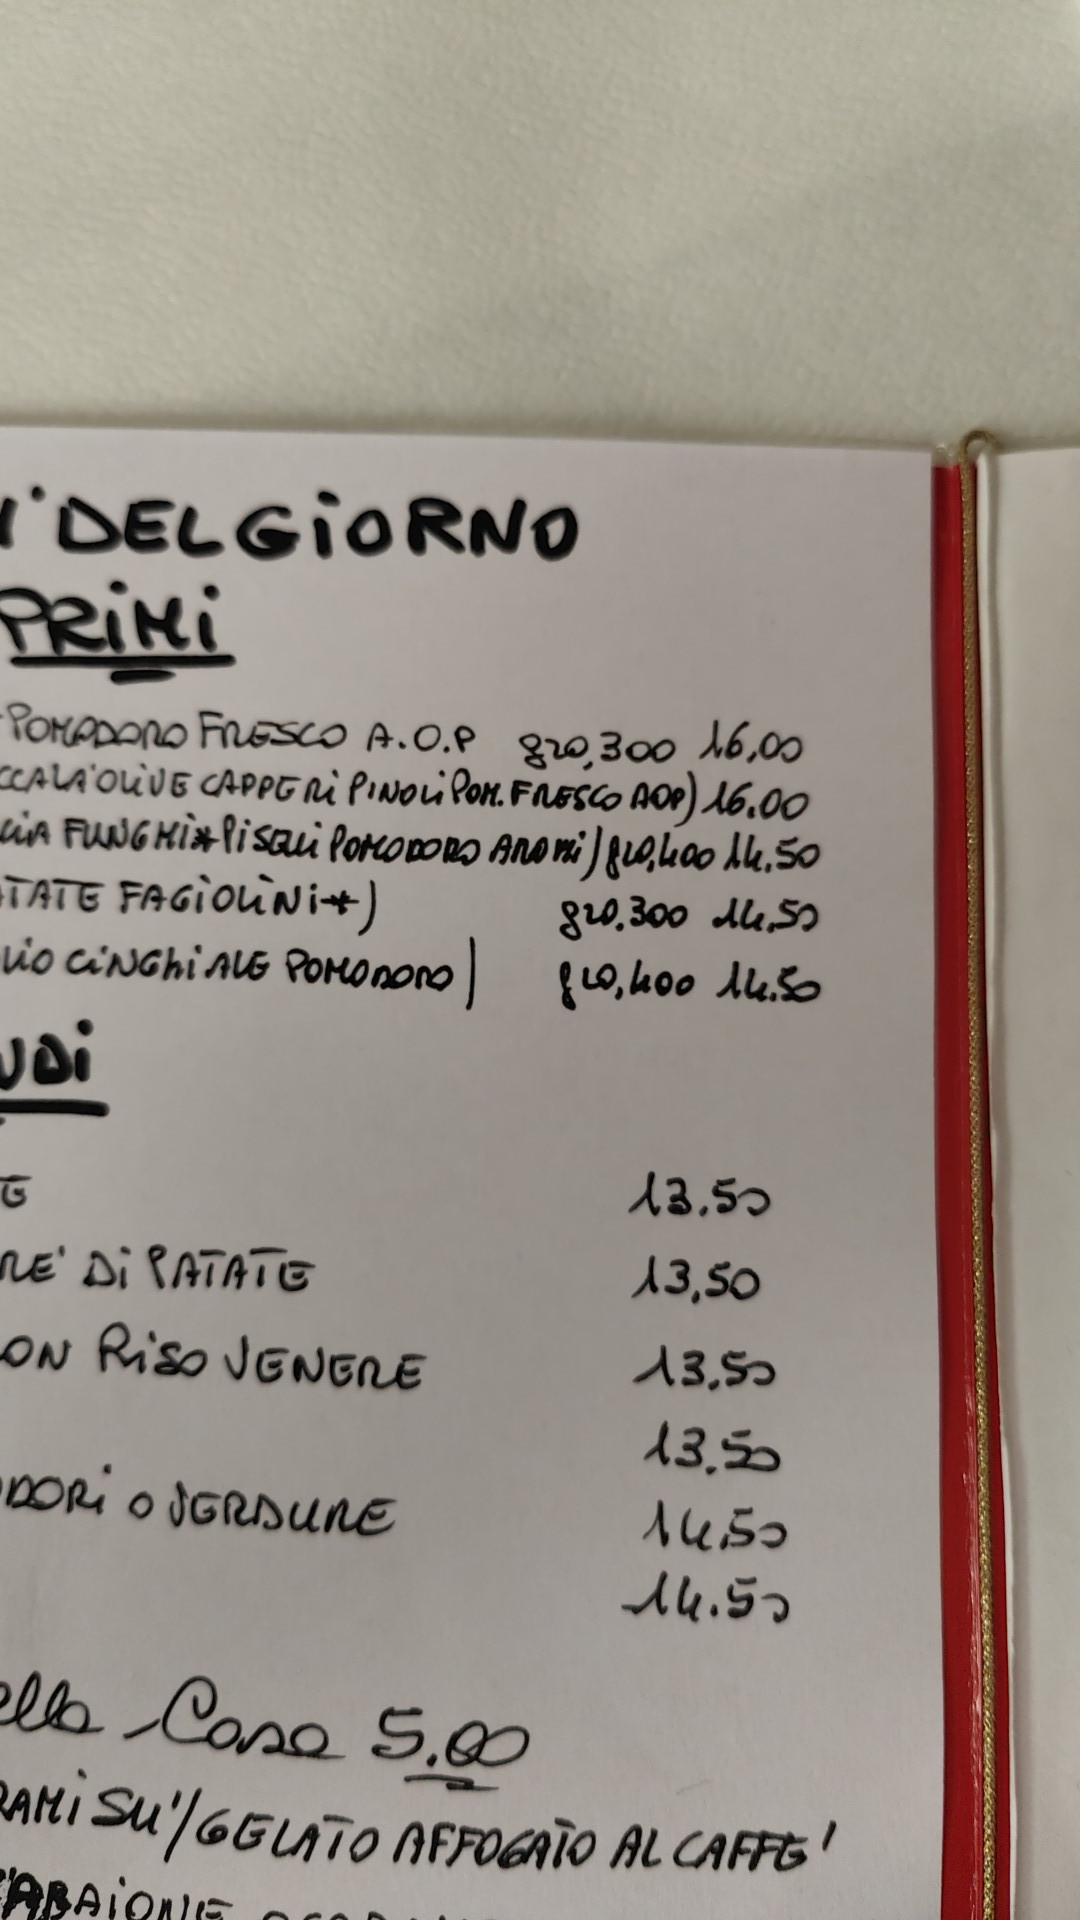 I' DEL GIORNO
PRIMI
POMODORO FRESCO A.O.P gr0,300 16,00
CCALA' OLIVE CAPPERI PINOLI POM. FRESCO AOP) 16.00
FUNGHI* PISELLI POMODORO AROMI) gr0,400 14.50
TATE FAGIOLINI*) gr0.300 14,50
CINGHIALE POMODORO) gr0,400 14.50
UDI
E 13.50
RE' DI PATATE 13,50
ON RISO VENERE 13.50
13.50
DORI O VERDURE 14,50
14.50
ella Casa 5.00
RAMISU'/GELATO AFFOGATO AL CAFFE'